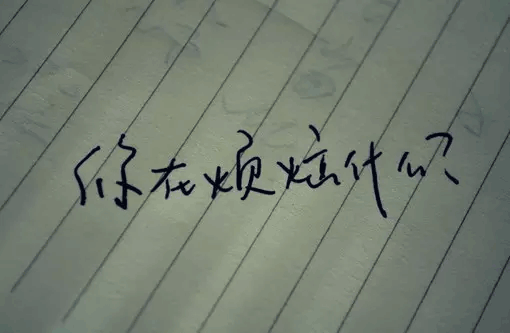 你在烦恼什么